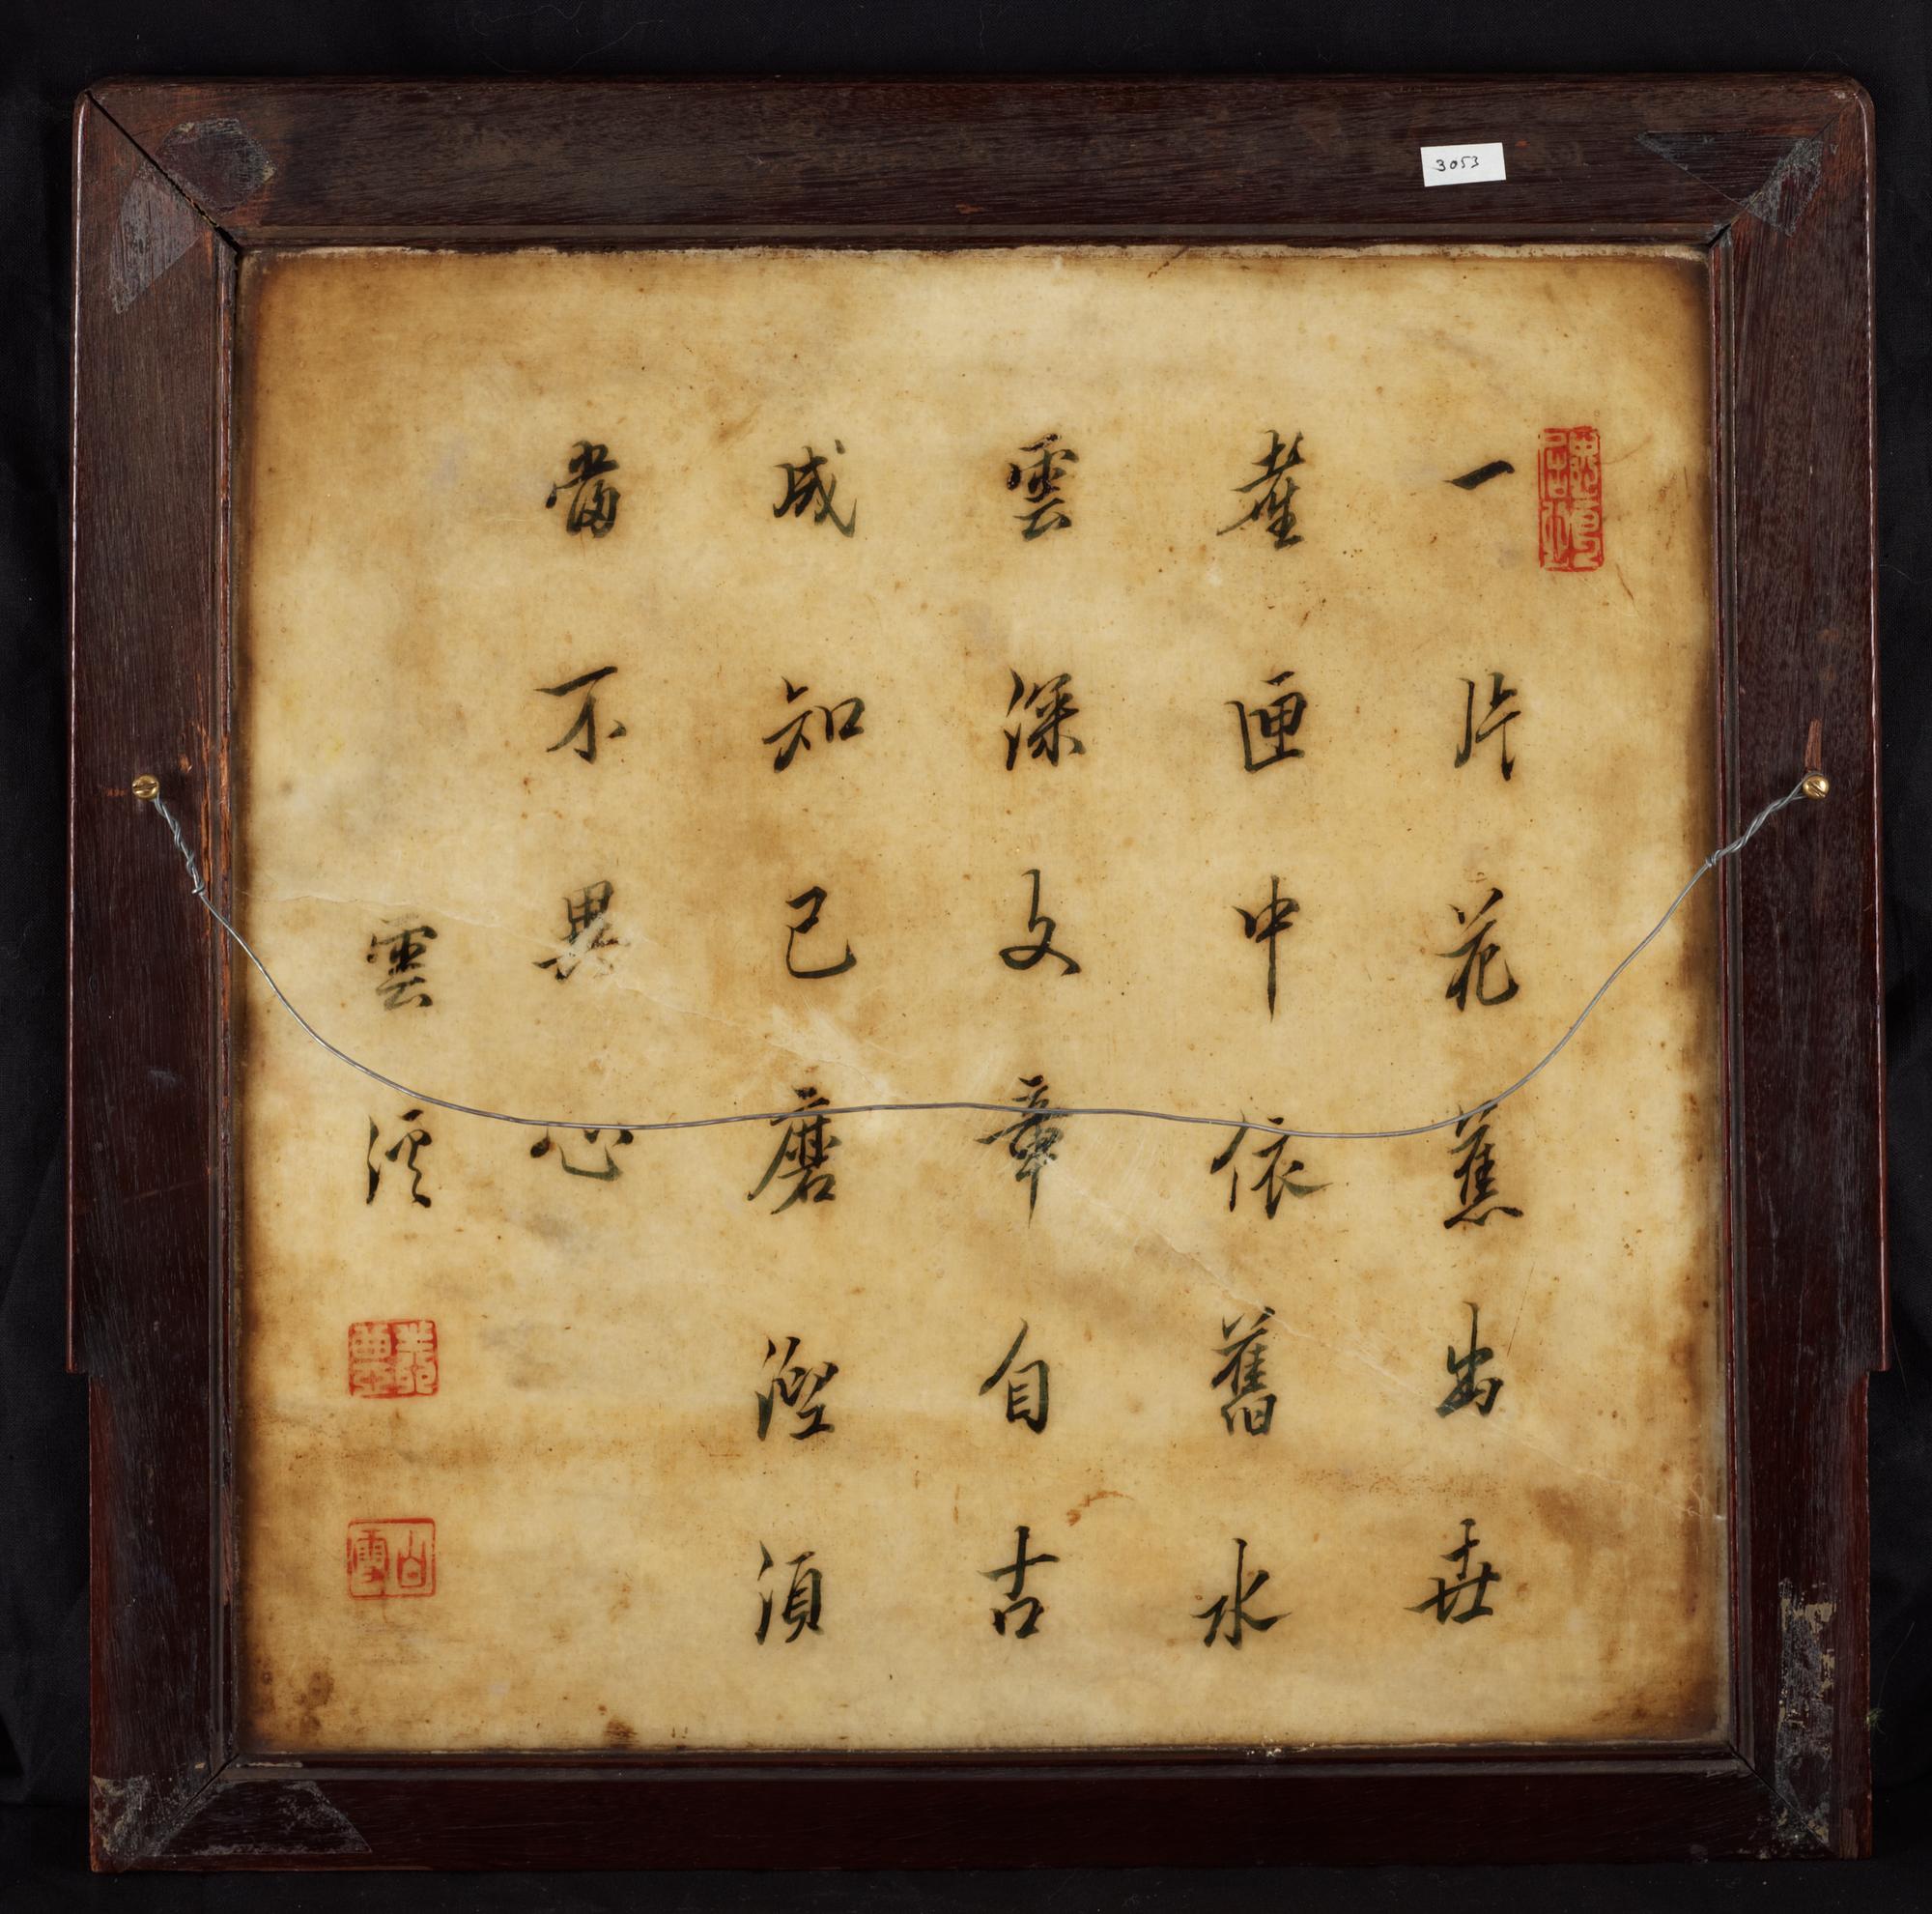 3053
一片花蕉出
匣中依舊水
雲深文章自古
成知己磨涅湏
當不異心
雲溪